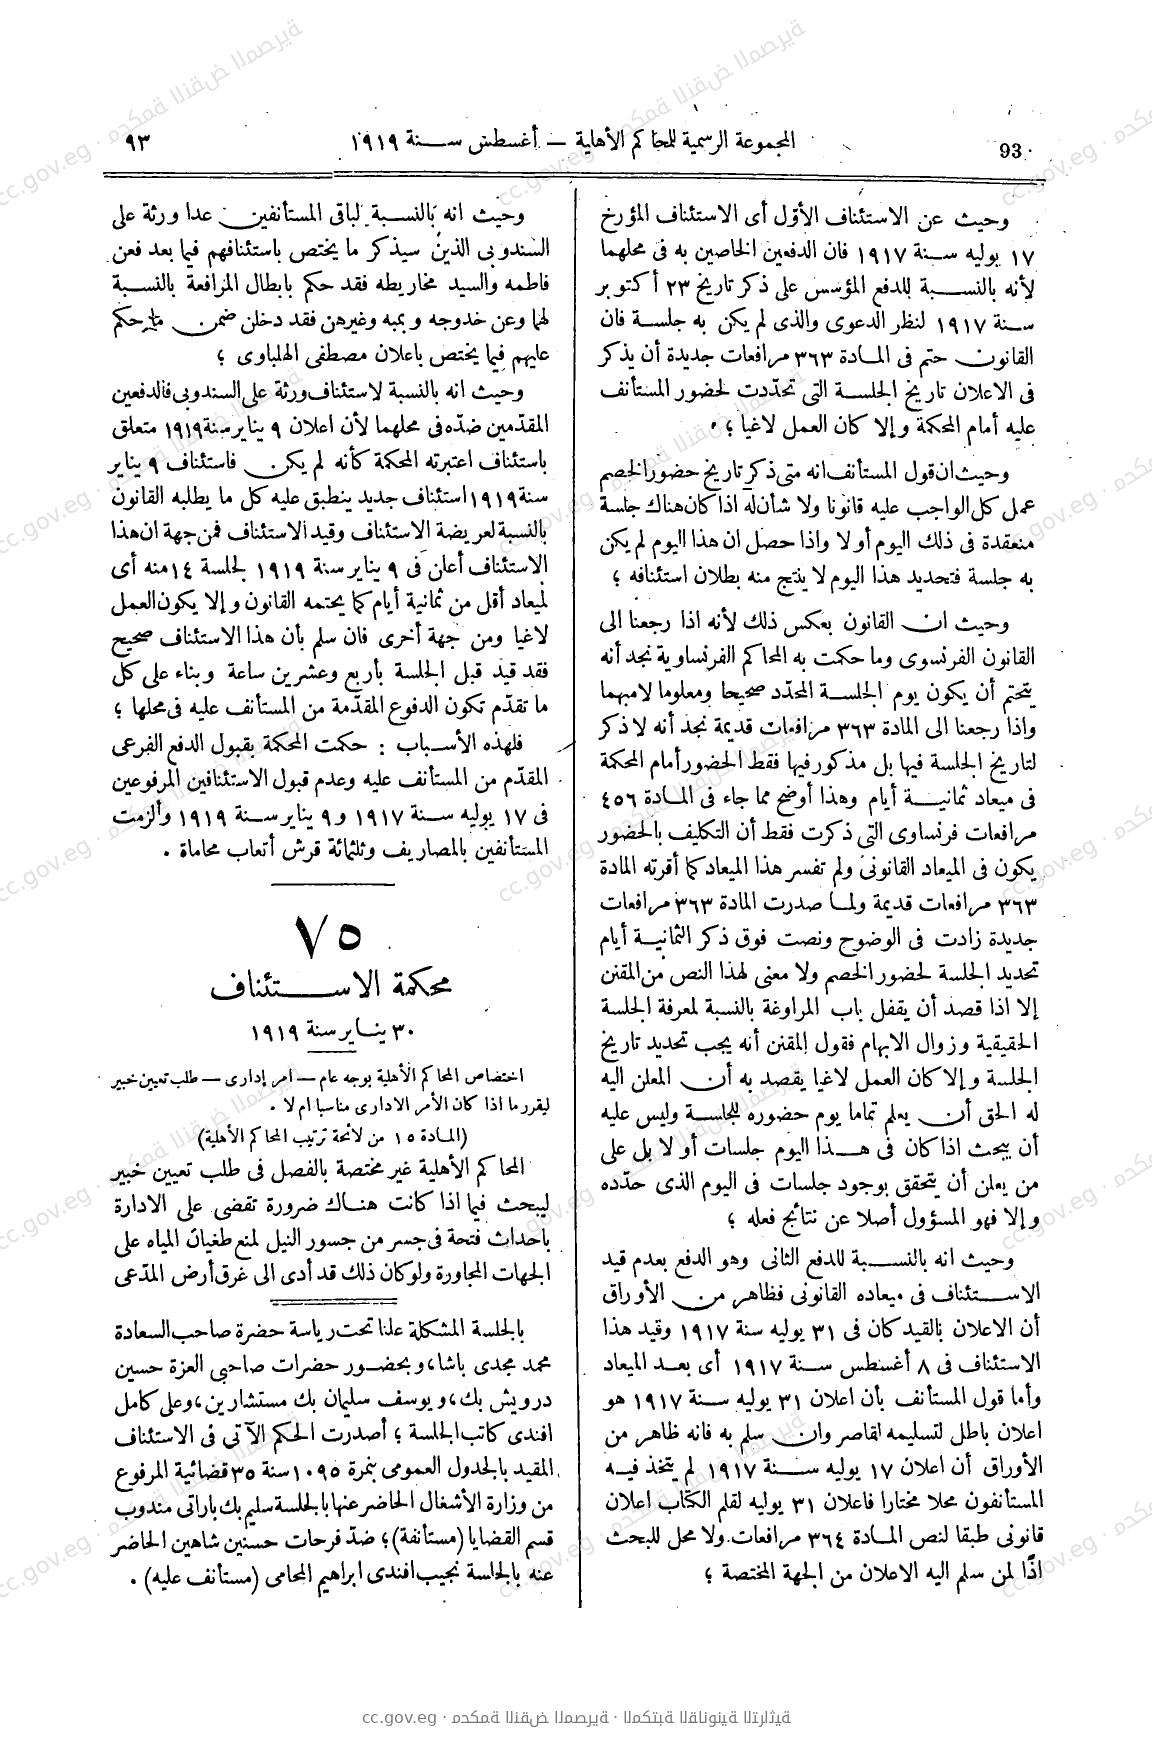 93
المجموعة الرسمية للمحاكم الأهلية — أغسطس سنة ١٩١٩
٩٣
وحيث عن الاستئناف الأول أى الاستئناف المؤرخ
١٧ يوليه سنة ١٩١٧ فان الدفعين الخاصين به فى محلهما
لأنه بالنسبة للدفع المؤسس على ذكر تاريخ ٢٣ أكتوبر
سنة ١٩١٧ لنظر الدعوى والذى لم يكن به جلسة فان
القانون حتم فى المادة ٣٦٣ مرافعات جديدة أن يذكر
فى الاعلان تاريخ الجلسة التى تحدّدت لحضور المستأنف
عليه أمام المحكمة وإلا كان العمل لاغيا ؛
وحيث ان قول المستأنف انه متى ذكر تاريخ حضور الخصم
عمل كل الواجب عليه قانونا ولا شأن له اذا كان هناك جلسة
منعقدة فى ذلك اليوم أو لا واذا حصل ان هذا اليوم لم يكن
به جلسة فتحديد هذا اليوم لا ينتج منه بطلان استئنافه ؛
وحيث ان القانون بعكس ذلك لأنه اذا رجعنا الى
القانون الفرنسوى وما حكمت به المحاكم الفرنساوية نجد أنه
يتحتم أن يكون يوم الجلسة المحدّد صحيحا ومعلوما لا مبهما
واذا رجعنا الى المادة ٣٦٣ مرافعات قديمة نجد أنه لا ذكر
لتاريخ الجلسة فيها بل مذكور فيها فقط الحضور أمام المحكمة
فى ميعاد ثمانية أيام وهذا أوضح مما جاء فى المادة ٤٥٦
مرافعات فرنساوى التى ذكرت فقط أن التكليف بالحضور
يكون فى الميعاد القانونى ولم تفسر هذا الميعاد كما أقرته المادة
٣٦٣ مرافعات قديمة ولما صدرت المادة ٣٦٣ مرافعات
جديدة زادت فى الوضوح ونصت فوق ذكر الثمانية أيام
تحديد الجلسة لحضور الخصم ولا معنى لهذا النص من المقنن
إلا اذا قصد أن يقفل باب المراوغة بالنسبة لمعرفة الجلسة
الحقيقية وزوال الابهام فقول المقنن أنه يجب تحديد تاريخ
الجلسة وإلا كان العمل لاغيا يقصد به أن المعلن اليه
له الحق أن يعلم تماما يوم حضوره للجلسة وليس عليه
أن يبحث اذا كان فى هذا اليوم جلسات أو لا بل على
من يعلن أن يتحقق بوجود جلسات فى اليوم الذى حدّده
وإلا فهو المسؤول أصلا عن نتائج فعله ؛
وحيث انه بالنسبة للدفع الثانى وهو الدفع بعدم قيد
الاستئناف فى ميعاده القانونى فظاهر من الأوراق
أن الاعلان بالقيد كان فى ٣١ يوليه سنة ١٩١٧ وقيد هذا
الاستئناف فى ٨ أغسطس سنة ١٩١٧ أى بعد الميعاد
وأما قول المستأنف بأن اعلان ٣١ يوليه سنة ١٩١٧ هو
اعلان باطل لتسليمه لقاصر وان سلم به فانه ظاهر من
الأوراق أن اعلان ١٧ يوليه سنة ١٩١٧ لم يتخذ فيه
المستأنفون محلا مختارا فاعلان ٣١ يوليه لقلم الكتاب اعلان
قانونى طبقا لنص المادة ٣٦٤ مرافعات ولا محل للبحث
اذًا لمن سلم اليه الاعلان من الجهة المختصة ؛
وحيث انه بالنسبة لباقى المستأنفين عدا ورثة على
السندوبى الذين سيذكر ما يختص باستئنافهم فيما بعد فعن
فاطمه والسيد مخاريطه فقد حكم بابطال المرافعة بالنسبة
لهما وعن خدوجه وبمبه وغيرهن فقد دخلن ضمن ما حكم
عليهم فيما يختص باعلان مصطفى الهلباوى ؛
وحيث انه بالنسبة لاستئناف ورثة على السندوبى فالدفعين
المقدّمين ضدّه فى محلهما لأن اعلان ٩ يناير سنة ١٩١٩ متعلق
باستئناف اعتبرته المحكمة كأنه لم يكن فاستئناف ٩ يناير
سنة ١٩١٩ استئناف جديد ينطبق عليه كل ما يطلبه القانون
بالنسبة لعريضة الاستئناف وقيد الاستئناف فمن جهة ان هذا
الاستئناف أعلن فى ٩ يناير سنة ١٩١٩ لجلسة ١٤ منه أى
لميعاد أقل من ثمانية أيام كما يحتمه القانون وإلا يكون العمل
لاغيا ومن جهة أخرى فان سلم بأن هذا الاستئناف صحيح
فقد قيد قبل الجلسة بأربع وعشرين ساعة وبناء على كل
ما تقدّم تكون الدفوع المقدّمة من المستأنف عليه فى محلها ؛
فلهذه الأسباب : حكمت المحكمة بقبول الدفع الفرعى
المقدّم من المستأنف عليه وعدم قبول الاستئنافين المرفوعين
فى ١٧ يوليه سنة ١٩١٧ و ٩ يناير سنة ١٩١٩ وألزمت
المستأنفين بالمصاريف وثلثمائة قرش أتعاب محاماة .
٧٥
محكمة الاستئناف
٣٠ يناير سنة ١٩١٩
اختصاص المحاكم الأهلية بوجه عام — امر إدارى — طلب تعيين خبير
ليقرر ما اذا كان الأمر الادارى مناسبا ام لا .
(المادة ١٥ من لائحة ترتيب المحاكم الأهلية)
المحاكم الأهلية غير مختصة بالفصل فى طلب تعيين خبير
ليبحث فيما اذا كانت هناك ضرورة تقضى على الادارة
باحداث فتحة فى جسر من جسور النيل لمنع طغيان المياه على
الجهات المجاورة ولو كان ذلك قد أدى الى غرق أرض المدّعى
بالجلسة المشكلة علنا تحت رياسة حضرة صاحب السعادة
محمد مجدى باشا، وبحضور حضرات صاحبى العزة حسين
درويش بك، ويوسف سليمان بك مستشارين، وعلى كامل
افندى كاتب الجلسة ؛ أصدرت الحكم الآتى فى الاستئناف
المقيد بالجدول العمومى بنمرة ١٠٩٥ سنة ٣٥ قضائية المرفوع
من وزارة الأشغال الحاضر عنها بالجلسة سليم بك باراتى مندوب
قسم القضايا (مستأنفة)؛ ضدّ فرحات حسنين شاهين الحاضر
عنه بالجلسة نجيب افندى ابراهيم المحامى (مستأنف عليه) .
cc.gov.eg · محكمة النقض المصرية · المكتبة القانونية التراثية